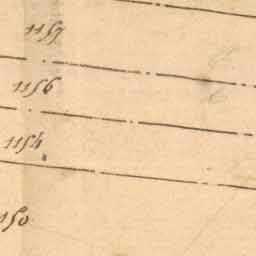 1157
1156
1154
1150